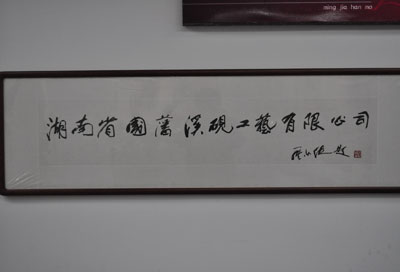 ming jia han mo
湖南省國藩溪硯工藝有限公司